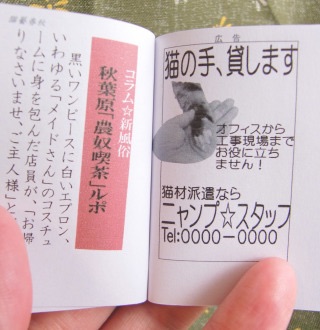 コラム☆新風俗
秋葉原「農奴喫茶」ルポ
黒いワンピースに白いエプロン、
いわゆる「メイドさん」のコスチュ
ームに身を包んだ店員が、「お帰
りなさいませ、ご主人様」と
広告
猫の手、貸します
オフィスから
工事現場まで
お役に立ち
ません！
猫材派遣なら
ニャンプ☆スタッフ
Tel:0000-0000